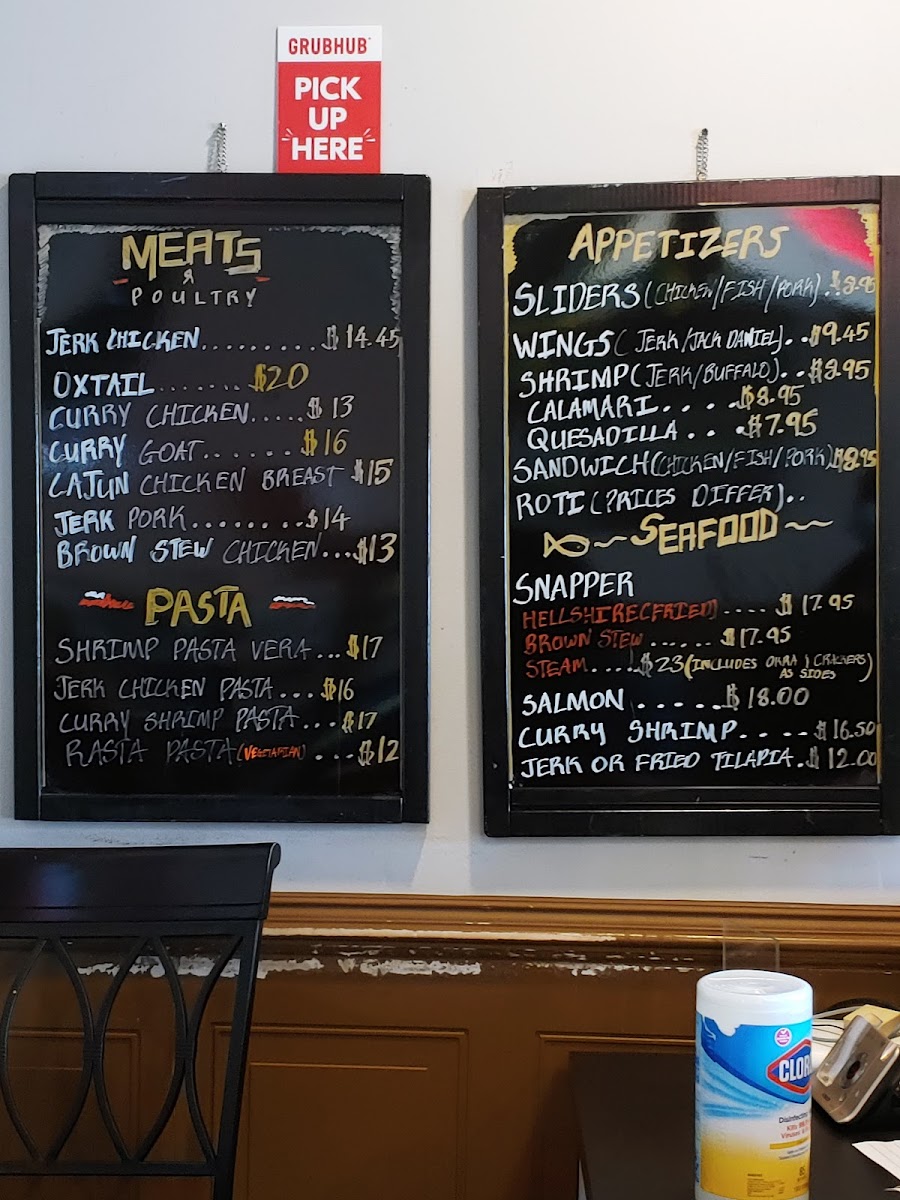 GRUBHUB
PICK
UP
HERE
MEATS
&
POULTRY
JERK CHICKEN......... $14.45
OXTAIL....... $20
CURRY CHICKEN..... $13
CURRY GOAT....... $16
CAJUN CHICKEN BREAST $15
JERK PORK......... $14
BROWN STEW CHICKEN... $13
PASTA
SHRIMP PASTA VERA... $17
JERK CHICKEN PASTA... $16
CURRY SHRIMP PASTA... $17
RASTA PASTA (VEGETARIAN) ... $12
APPETIZERS
SLIDERS (CHICKEN/FISH/PORK)..
WINGS (JERK/JACK DANIEL).. $9.45
SHRIMP (JERK/BUFFALO)..
CALAMARI.... $8.95
QUESADILLA... $7.95
SANDWICH (CHICKEN/FISH/PORK) $8.95
ROTI (PRICES DIFFER)..
SEAFOOD
SNAPPER
HELLSHIRE (FRIED) .... $17.95
BROWN STEW...... $17.95
STEAM.... $23 (INCLUDES OKRA CRACKERS)
AS SIDES
SALMON ...... $18.00
CURRY SHRIMP..... $16.50
JERK OR FRIED TILAPIA. $12.00
CLOR
Disinfecting
Kills
Viruses &